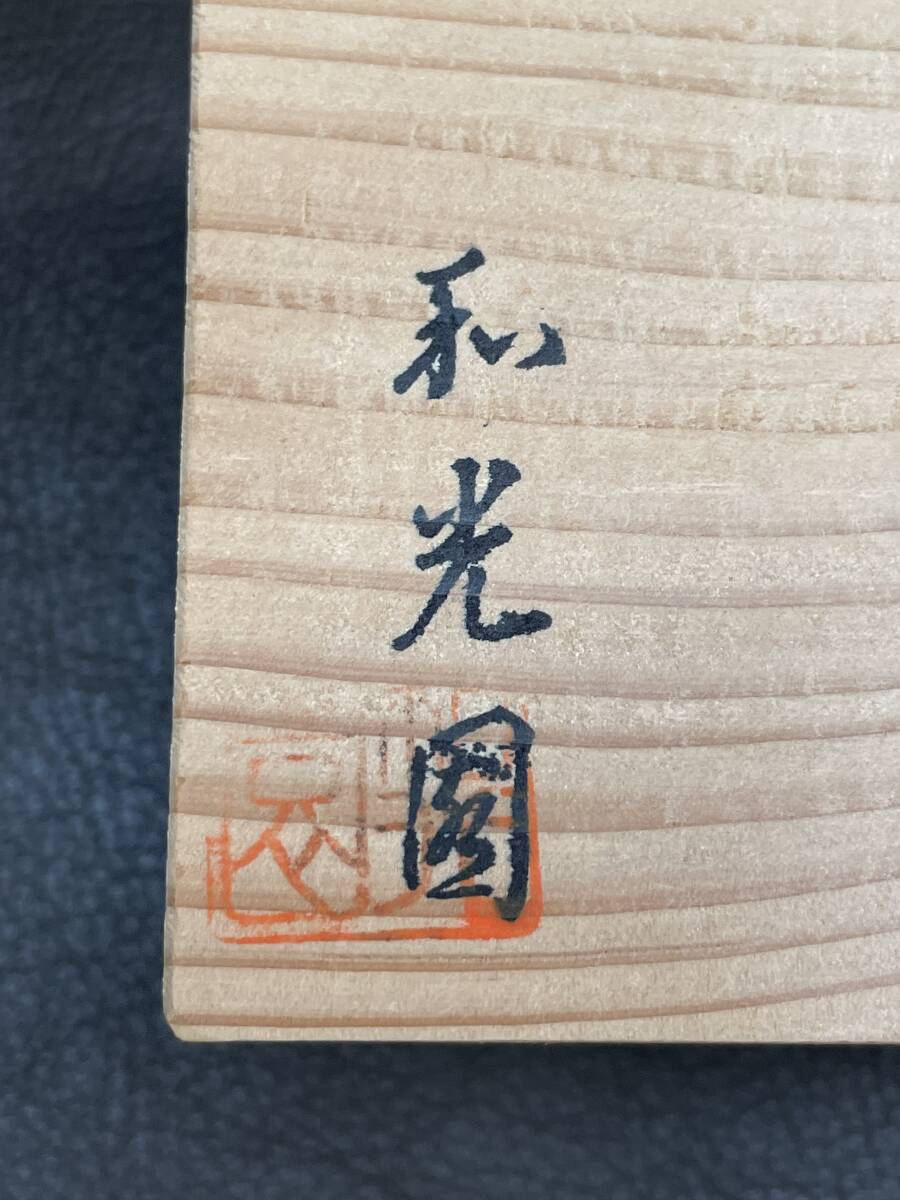 和光園